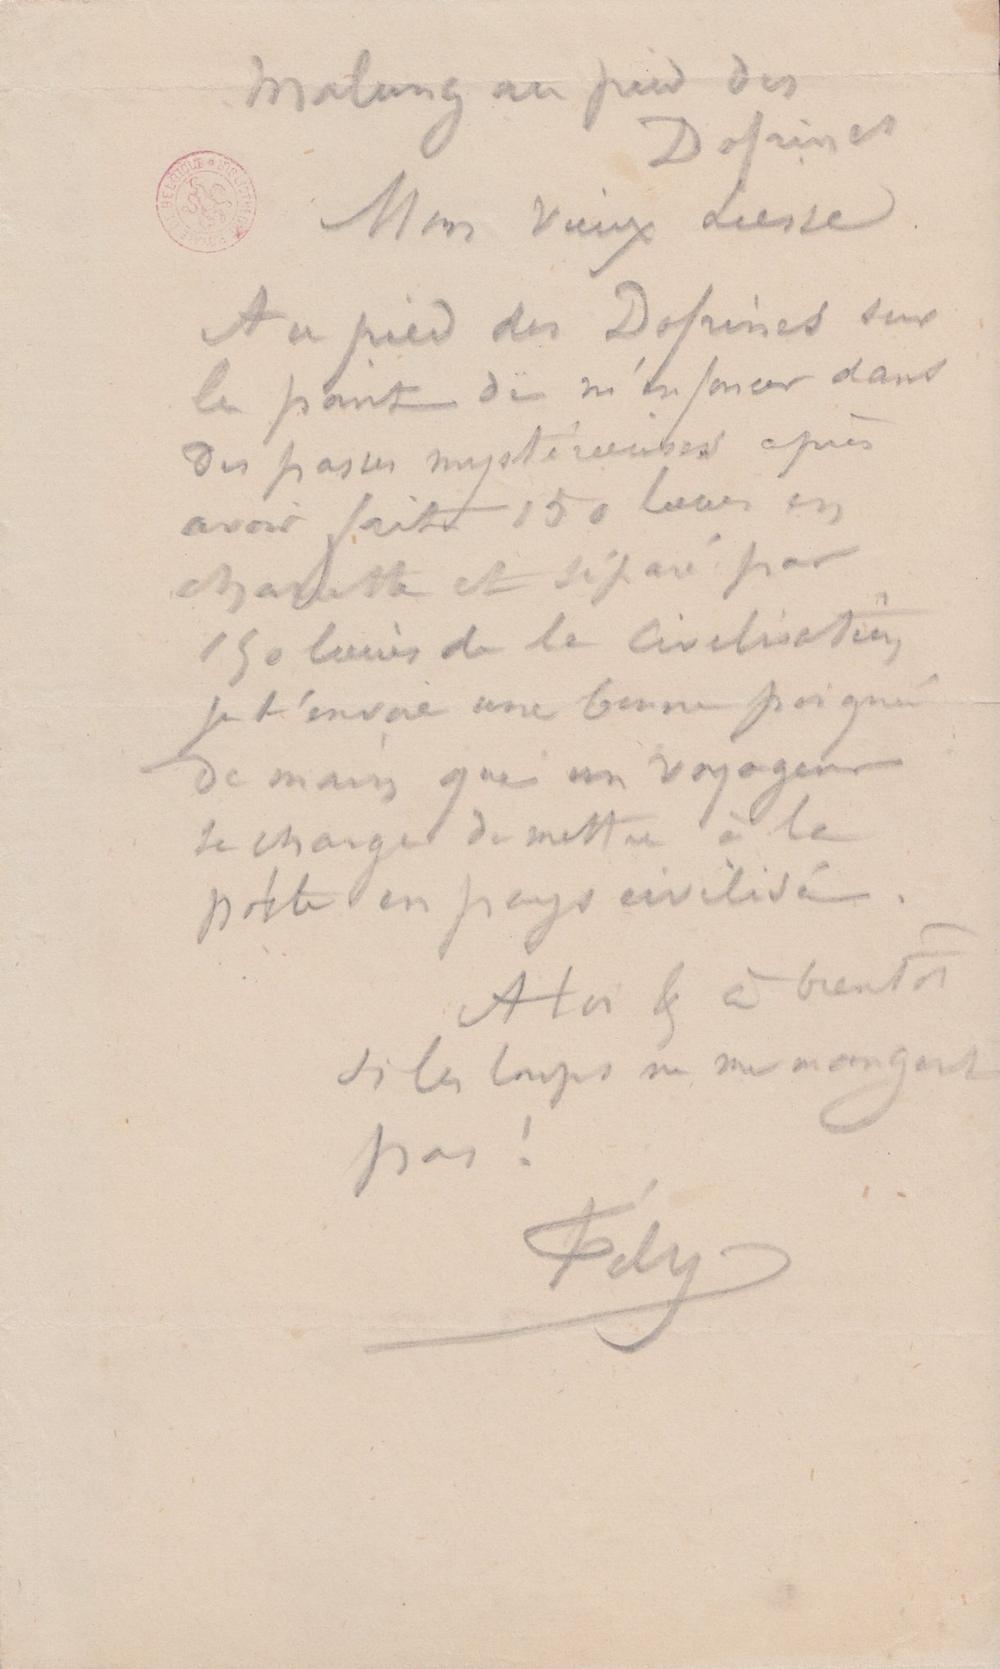 Malung au pied des
Dofrines
Mon vieux Liesse
Au pied des Dofrines sur
le point de m'enfoncer dans
des passes mystérieuses après
avoir fait 150 lieues en
charette et séparé par
150 lieues de la civilisation
je t'envoie une bonne poignée
de main que un voyageur
se charge de mettre à la
poste en pays civilisé.
A toi & à bientôt
si les loups ne me mangent
pas !
Fély